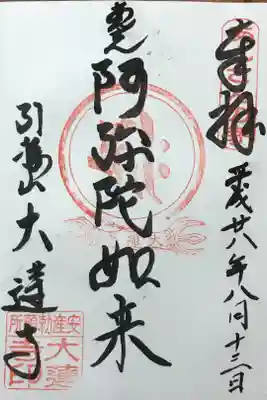 奉拝
平成廿八年八月十三日
阿弥陀如来
引接山 大蓮寺
安産勅願所
大蓮寺印